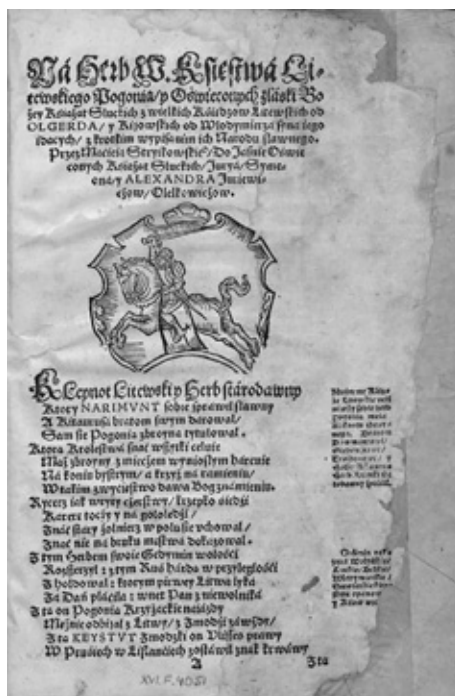 Ná Herb W. Księstwá Li-
tewskiego Pogonia/ y Oświeconych z łáski Bo
żey Książąt Słuckich z wielkich Kśiędzow Litewskich od
OLGERDA/ y Kijowskich od Włodymierzá syná iego
idących/ z krotkim wypisánim ich Narodu sławnego.
Przez Macieiá Strykowskie°/ Do Jáśnie Oświe
conych Książąt Słuckich/ Jurya/ Syme-
oná/ y ALEXANDRA Juriewi-
czow/ Olelkowiczow.
KLeynot Litewski y Herb stárodawny
Ktory NARIMUNT sobie spráwił sławny
A Kitáurusá brátom swym dárował/
Sam się Pogonia zbroyna tytułował.
Ktora Krolestwá znáć wszytki celuie
Mąż zbroyny z mieczem wyniosłym hárcuie
Ná koniu bystrym/ á krzyż ná rámieniu/
W tákim zwycięstwo dawa Bog známieniu.
Rycerz iák wryty czerstwy/ krzepko siedźi
Karere toczy y ná gołoledźi/
Znáć stáry żołnierz w polu sie vchował/
Znáć nie ná bruku męstwá dokázował.
Z tym Herbem swoie Gedymin włości
Rozszerzył: z tym Ruś hárda w przyległości
Zhołdował: ktorym pirwey Litwá łyká
Zá Dań płáćiłá: wnet Pan z niewolniká
Z tą on Pogonią Krzyżáckie naiázdy
Mężnie odbijał z Litwy/ z Zmodźi záwżdy/
Z tą KEYSTUT Zmodzki on Vlisses práwy
W Prusiech w Liflánćiech zostáwił znák krwáwy
A
Z tą
XVI. F. 4051